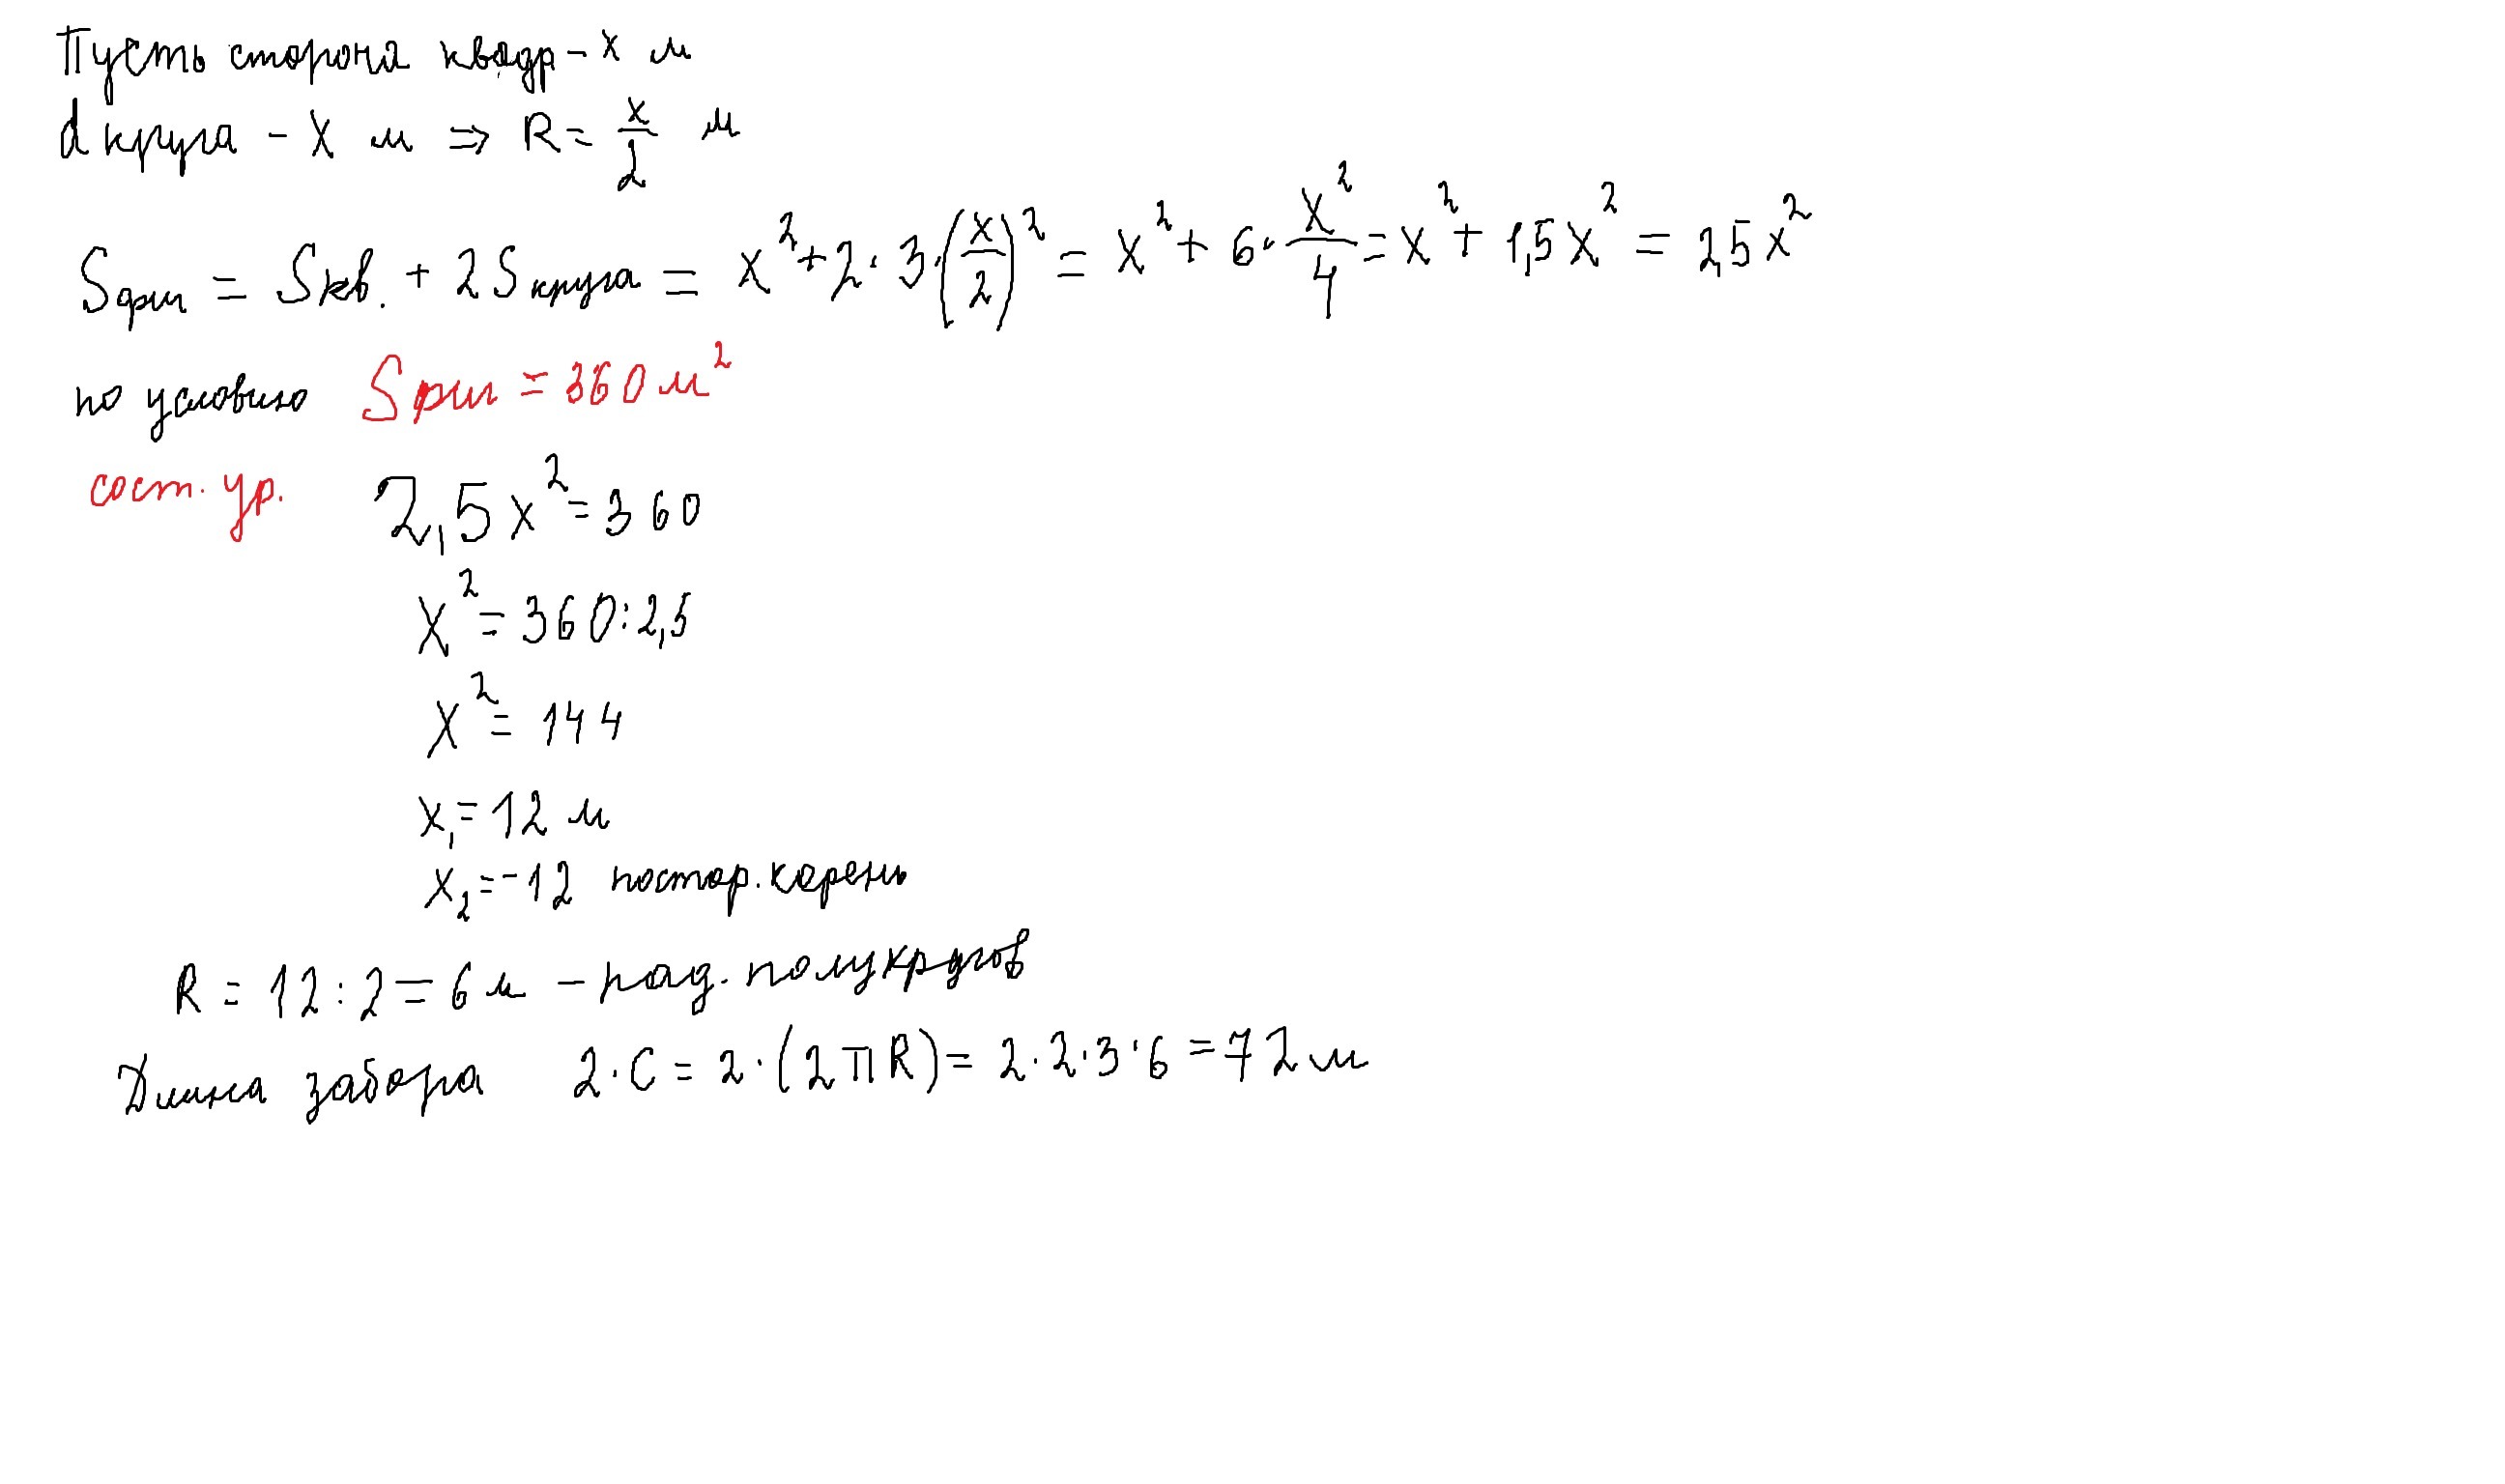 Пусть сторона квадр - x м
d круга - X м ⇒ R = x/2 м
Sфиг = Sкв. + 2Sкруга = x² + 2·3·(x/2)² = x² + 6·x²/4 = x² + 1,5x² = 2,5x²
по условию Sфиг = 360 м²
сост. ур. 2,5x² = 360
x² = 360:2,5
x² = 144
x₁ = 12 м
x₂ = -12 постор. корень
R = 12:2 = 6 м - рад. полукругов
Длина забора 2·C = 2·(2πR) = 2·2·3·6 = 72 м